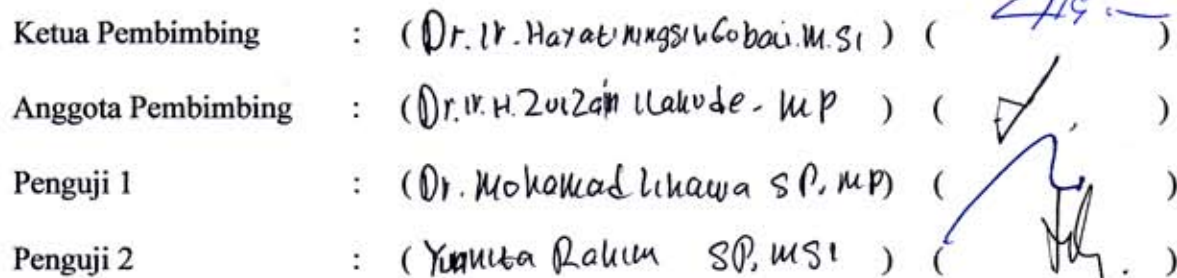 Ketua Pembimbing : (Dr. Ir. Hayatiningsih Gobai. M.Si ) ( )
Anggota Pembimbing : (Dr. Ir. H. Zulzain Ilahude - MP ) ( )
Penguji 1 : (Dr. Mohamad Lihawa SP, MP) ( )
Penguji 2 : ( Rahim SP, MSi ) ( )